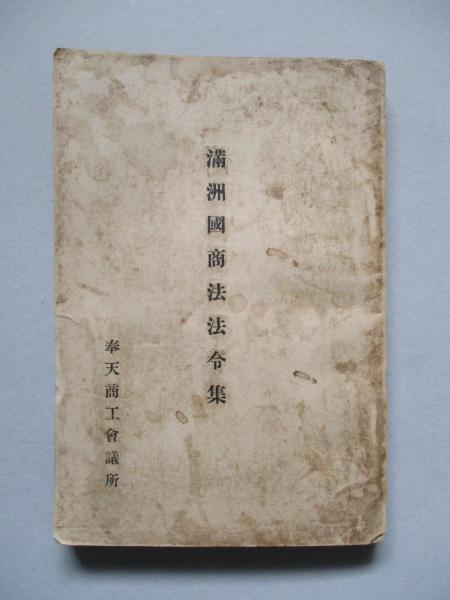 滿洲國商法法令集
奉天商工會議所